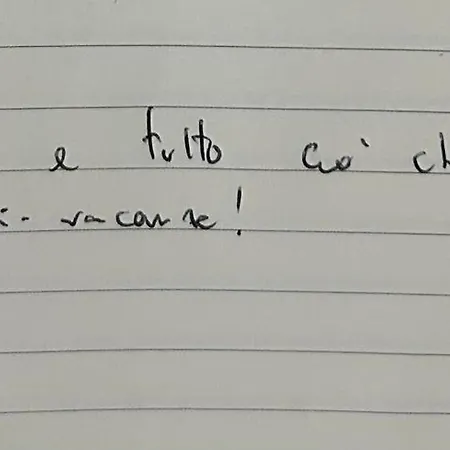 e tutto ciò ch
vacanze!